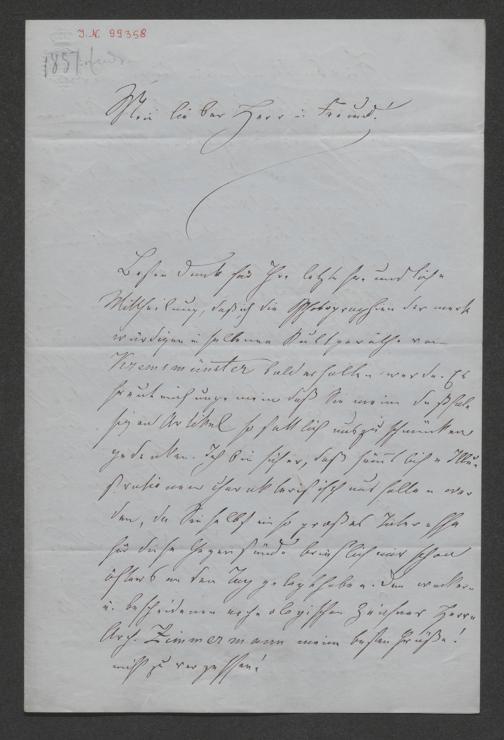 J. N. 99358
1857
Mein lieber Herr u. Freund!
Besten Dank für Ihre letzte freundliche
Mittheilung, daß ich die Photographien der merk
würdigen u. seltenen Kultgeräthe von
Kremsmünster bald erhalten werde. Es
freut mich ungemein daß Sie meinen
Artikel so stattlich auszuschmücken
gedenken. Ich bin sicher, daß sämmtliche Illu-
strationen charakteristisch ausfallen wer
den, da Sie selbst ein so großes Interesse
für diese Gegenstände brieflich mir schon
öfters an den Tag gelegt haben. Den wackern
u. bescheidenen archeologischen Zeichner Herrn
Arch. Zimmermann meine besten Grüße!
nicht zu vergessen!